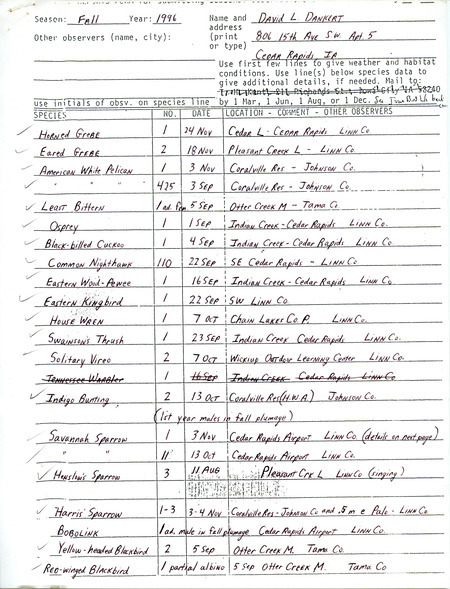 Season: Fall Year: 1996 Name and David L Dankert
address
Other observers (name, city): (print 806 15th Ave SW Apt 5
or type)
Cedar Rapids IA
Use first few lines to give weather and habitat
conditions. Use line(s) below species data to
give additional details, if needed. Mail to:
use initials of obsv. on species line by 1 Mar, 1 Jun, 1 Aug, or 1 Dec.
SPECIES NO. DATE LOCATION - COMMENT - OTHER OBSERVERS
Horned Grebe 1 24 Nov Cedar L - Cedar Rapids Linn Co.
Eared Grebe 2 18 Nov Pleasant Creek L - Linn Co.
American White Pelican 1 3 Nov Coralville Res - Johnson Co.
" " " 425 3 Sep Coralville Res - Johnson Co.
Least Bittern 1 ad. 5 Sep Otter Creek M - Tama Co.
Osprey 1 1 Sep Indian Creek - Cedar Rapids Linn Co.
Black-billed Cuckoo 1 4 Sep Indian Creek - Cedar Rapids Linn Co.
Common Nighthawk 110 22 Sep SE Cedar Rapids - Linn Co.
Eastern Wood-Pewee 1 16 Sep Indian Creek - Cedar Rapids Linn Co.
Eastern Kingbird 1 22 Sep SW Linn Co.
House Wren 1 7 Oct Chain Lakes Co. P. Linn Co.
Swainson's Thrush 1 23 Sep Indian Creek Cedar Rapids Linn Co.
Solitary Vireo 2 7 Oct Wickiup Outdoor Learning Center Linn Co.
Tennessee Warbler 1 16 Sep Indian Creek Cedar Rapids Linn Co
Indigo Bunting 2 13 Oct Coralville Res (H.W.A.) Johnson Co.
(1st year males in fall plumage)
Savannah Sparrow 1 3 Nov Cedar Rapids Airport Linn Co. (details on next page)
" " 11 13 Oct Cedar Rapids Airport Linn Co.
Henslow's Sparrow 3 11 Aug Pleasant Crk L Linn Co (singing)
Harris' Sparrow 1-3 3-4 Nov Coralville Res - Johnson Co and .5 m e Palo - Linn Co.
Bobolink 1 ad. male in fall plumage Cedar Rapids Airport Linn Co.
Yellow-headed Blackbird 2 5 Sep Otter Creek M. Tama Co.
Red-winged Blackbird 1 partial albino 5 Sep Otter Creek M. Tama Co